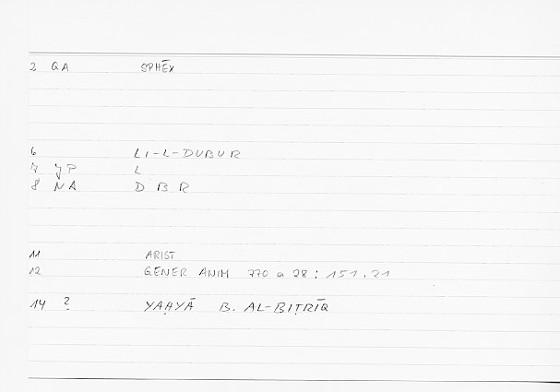 2 QA SPHĒX
6 LI-L-DUBUR
7 YP L
8 NA D B R
11 ARIST
12 GENER ANIM 770 a 28 : 151.21
14 ? YAḤYĀ B. AL-BIṬRĪQ